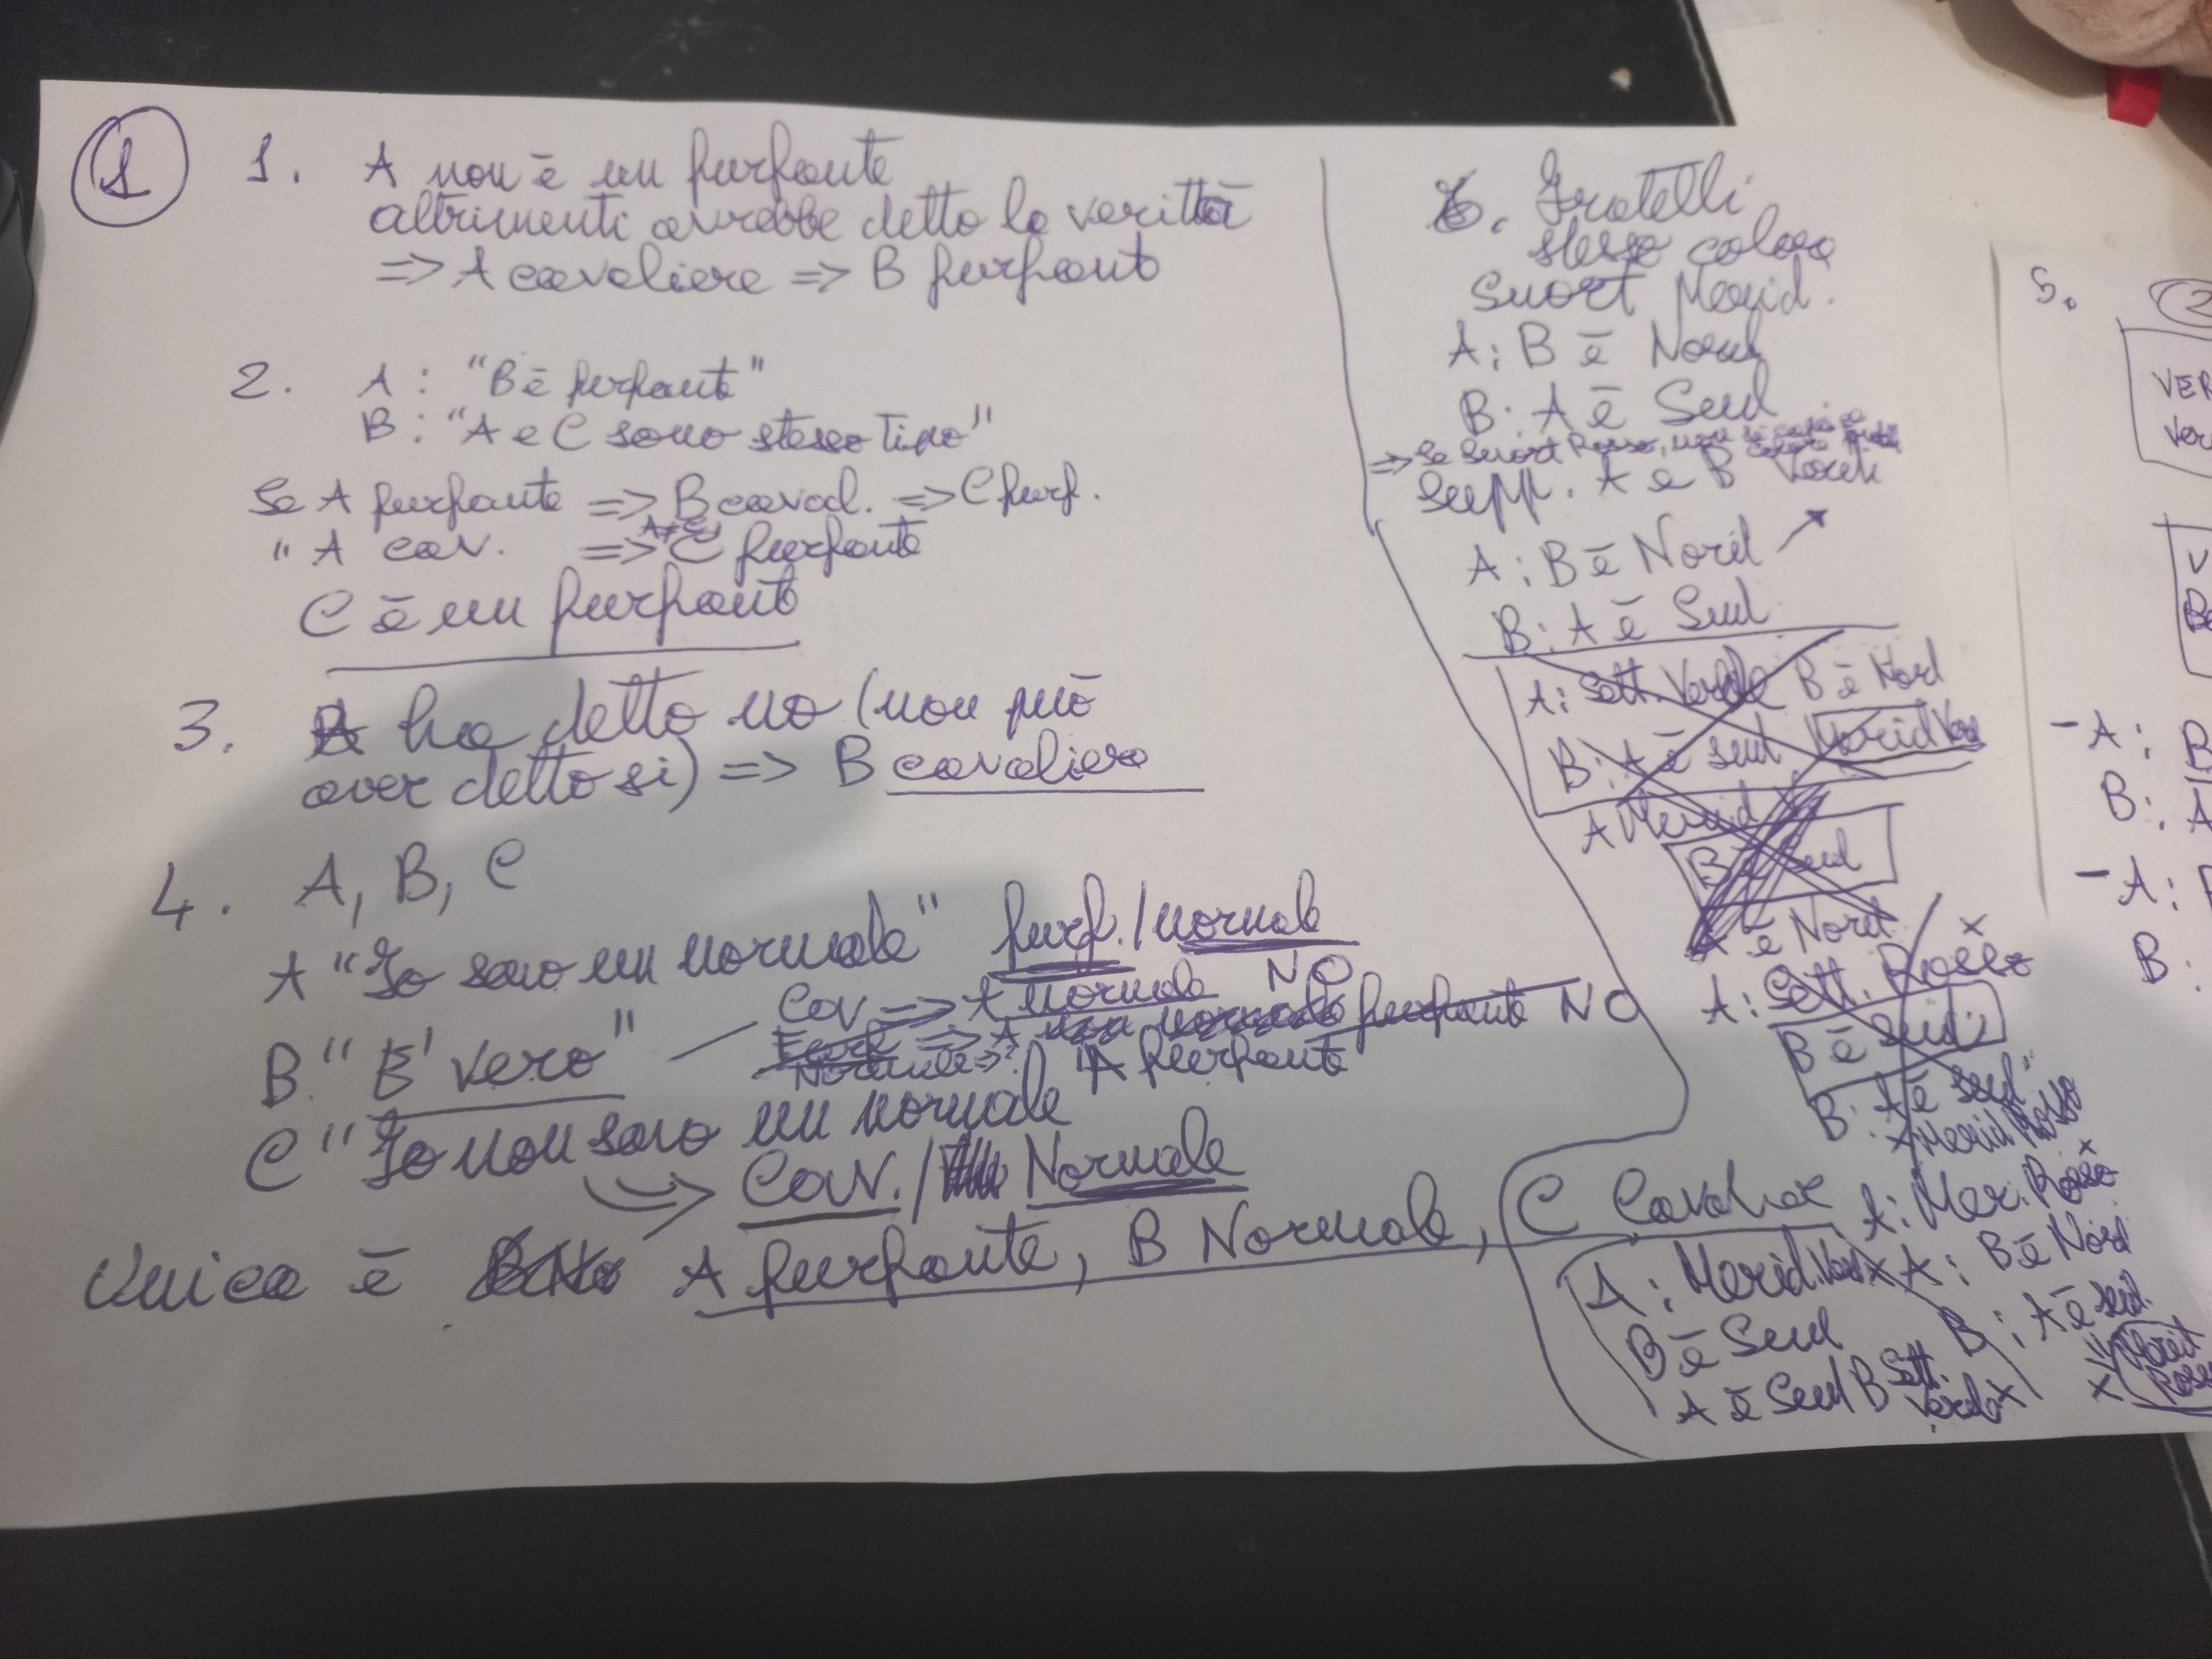 1
1. A non è un furfante
altrimenti avrebbe detto la verità
=> A cavaliere => B furfante
2. A: "B è furfante"
B: "A e C sono stesso tipo"
Se A furfante => B caval. => C furf.
" A cav. => C furfante
C è un furfante
3. A ha detto no (non può
aver detto si) => B cavaliere
4. A, B, C
A "Io sono un normale" furf./normale
Cav => A normale NO
B "E' vero"
furfante NO
Normale => ? A furfante
C "Io non sono un normale"
=> Cav./Normale
Unica è A furfante, B Normale, C Cavaliere
6. Fratelli
stesso colore
Snort Merid.
A: B è Nord
B: A è Sud
=> Se Snort Rosso, non si
Supp. A e B Verdi
A: B è Nord
B: A è Sud
A: Sett. Verde B è Nord
B: A è sud Merid Ver
A Merid
B è Sud
A è Nord
A: Sett. Rosso x
B è Sud
B: A è sud"
x Merid Rosso
A: Mer. Rosso x
A: B è Nord
B: A è sud.
x
A: Merid. Ver x
B è Sud
A è Sud B Sett.
Verde x
5. 2
VER
Ver
V
B
- A: B
B: A
- A:
B: